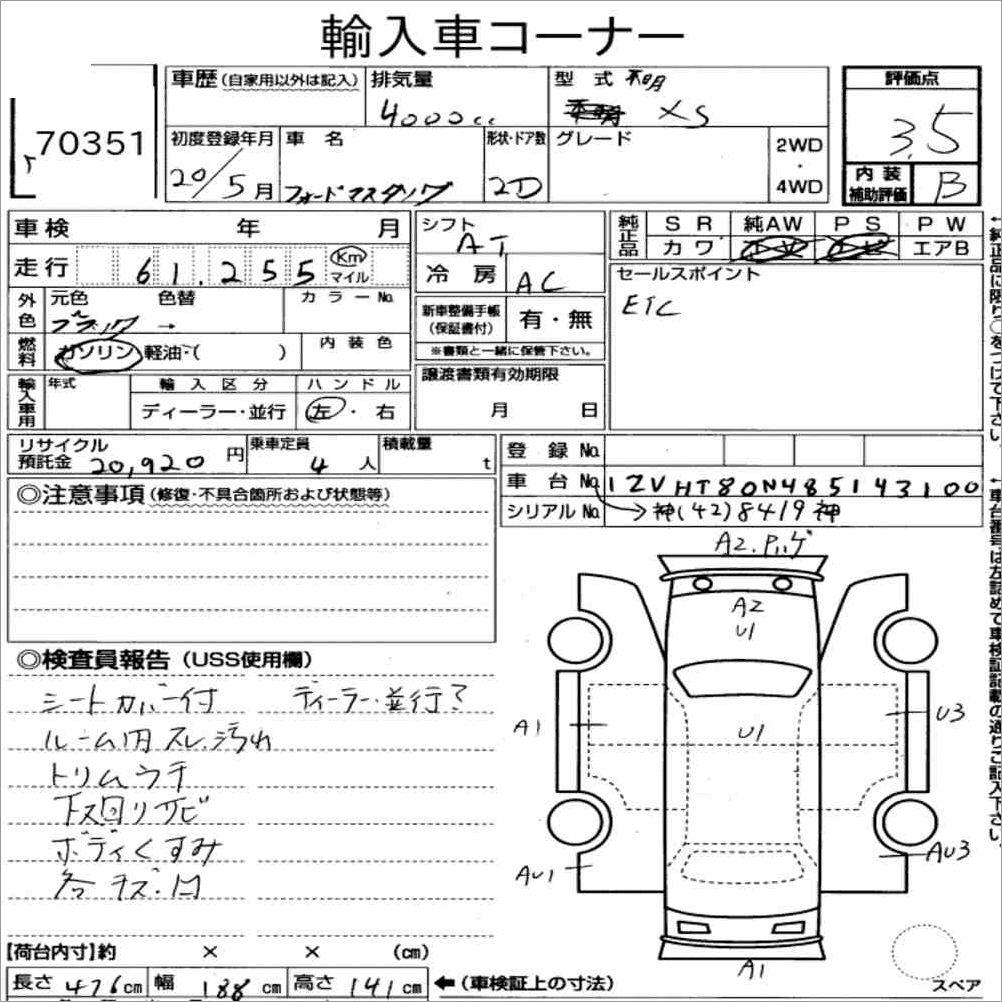 輸入車コーナー
70351
車歴(自家用以外は記入)
排気量
4000cc
型式 不明
XS
評価点
3.5
内装補助評価 B
初度登録年月
20/5月
車名
フォードマスタング
形状・ドア数
2D
グレード
2WD・4WD
車検 年 月
走行 61,255 Km マイル
外色 元色 色替 カラーNo.
ブラック →
燃料 ガソリン・軽油・( )
内装色
輸入車用 年式 輸入区分 ハンドル
ディーラー・並行 左・右
シフト AT
冷房 AC
新車整備手帳(保証書付) 有・無
※書類と一緒に保管下さい。
譲渡書類有効期限
月 日
純正品 SR 純AW PS PW
カワ エアB
セールスポイント
ETC
←純正品に限り○をつけて下さい。
リサイクル預託金 20,920円
乗車定員 4人
積載量 t
登録No.
車台No. 1ZVHT80N485143100
シリアルNo. →神(42)8419神
←車台番号は左詰めで車検証記載の通りご記入下さい。
◎注意事項(修復・不具合箇所および状態等)
◎検査員報告(USS使用欄)
シートカバー付 ディーラー・並行?
ルーム内スレ、汚れ
トリムウキ
下回りサビ
ボディくすみ
各キズ・凹
A2
A2
U1
A1
U1
U3
AU1
AU3
A1
スペア
【荷台内寸】約 × × (cm)
長さ 476cm 幅 188cm 高さ 141cm ←(車検証上の寸法)